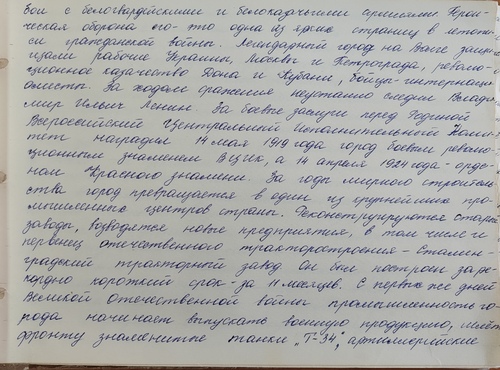 бои с белогвардейскими и белоказачьими армиями. Герои-
ческая оборона его- это одна из ярких страниц в летопи-
си гражданской войны. Легендарный город на Волге защи-
щали рабочие Украины, Москвы и Петрограда, револю-
ционное казачество Дона и Кубани, бойцы-интернаци-
оналисты. За ходом сражения неустанно следил Влади-
мир Ильич Ленин. За боевые заслуги перед Родиной
Всероссийский Центральный Исполнительный Коми-
тет наградил 14 мая 1919 года город боевым револю-
ционным знаменем ВЦИК, а 14 апреля 1924 года - орде-
ном Красного знамени. За годы мирного строитель-
ства город превращается в один из крупнейших про-
мышленных центров страны. Реконструируются старые
заводы, возводятся новые предприятия, в том числе и
первенец отечественного тракторостроения - Сталин-
градский тракторный завод. Он был построен за ре-
кордно короткий срок - за 11 месяцев. С первых же дней
Великой Отечественной войны промышленность го-
рода начинает выпускать военную продукцию, шлёт
фронту знаменитые танки „Т-34", артиллерийские